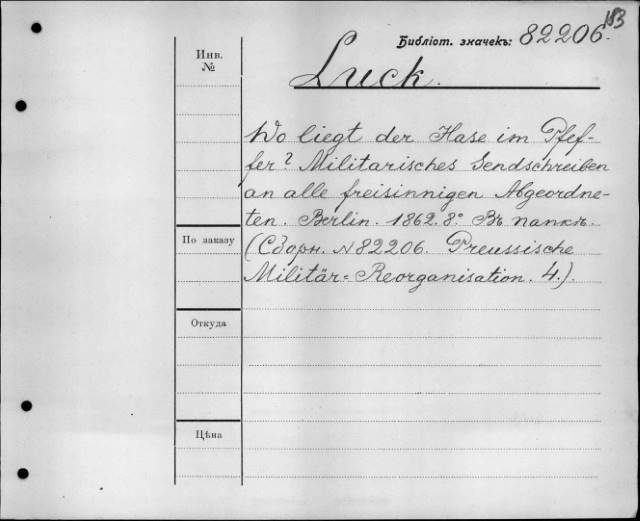 183
Библіот. значекъ: 82206.
Инв.
№
Luck.
Wo liegt der Hase im Pfef-
fer? Militarisches Sendschreiben
an alle freisinnigen Abgeordne-
ten. Berlin. 1862. 8°. Въ папкѣ.
(Сборн. N82206. Preussische
Militär=Reorganisation. 4.).
По заказу
Откуда
Цѣна